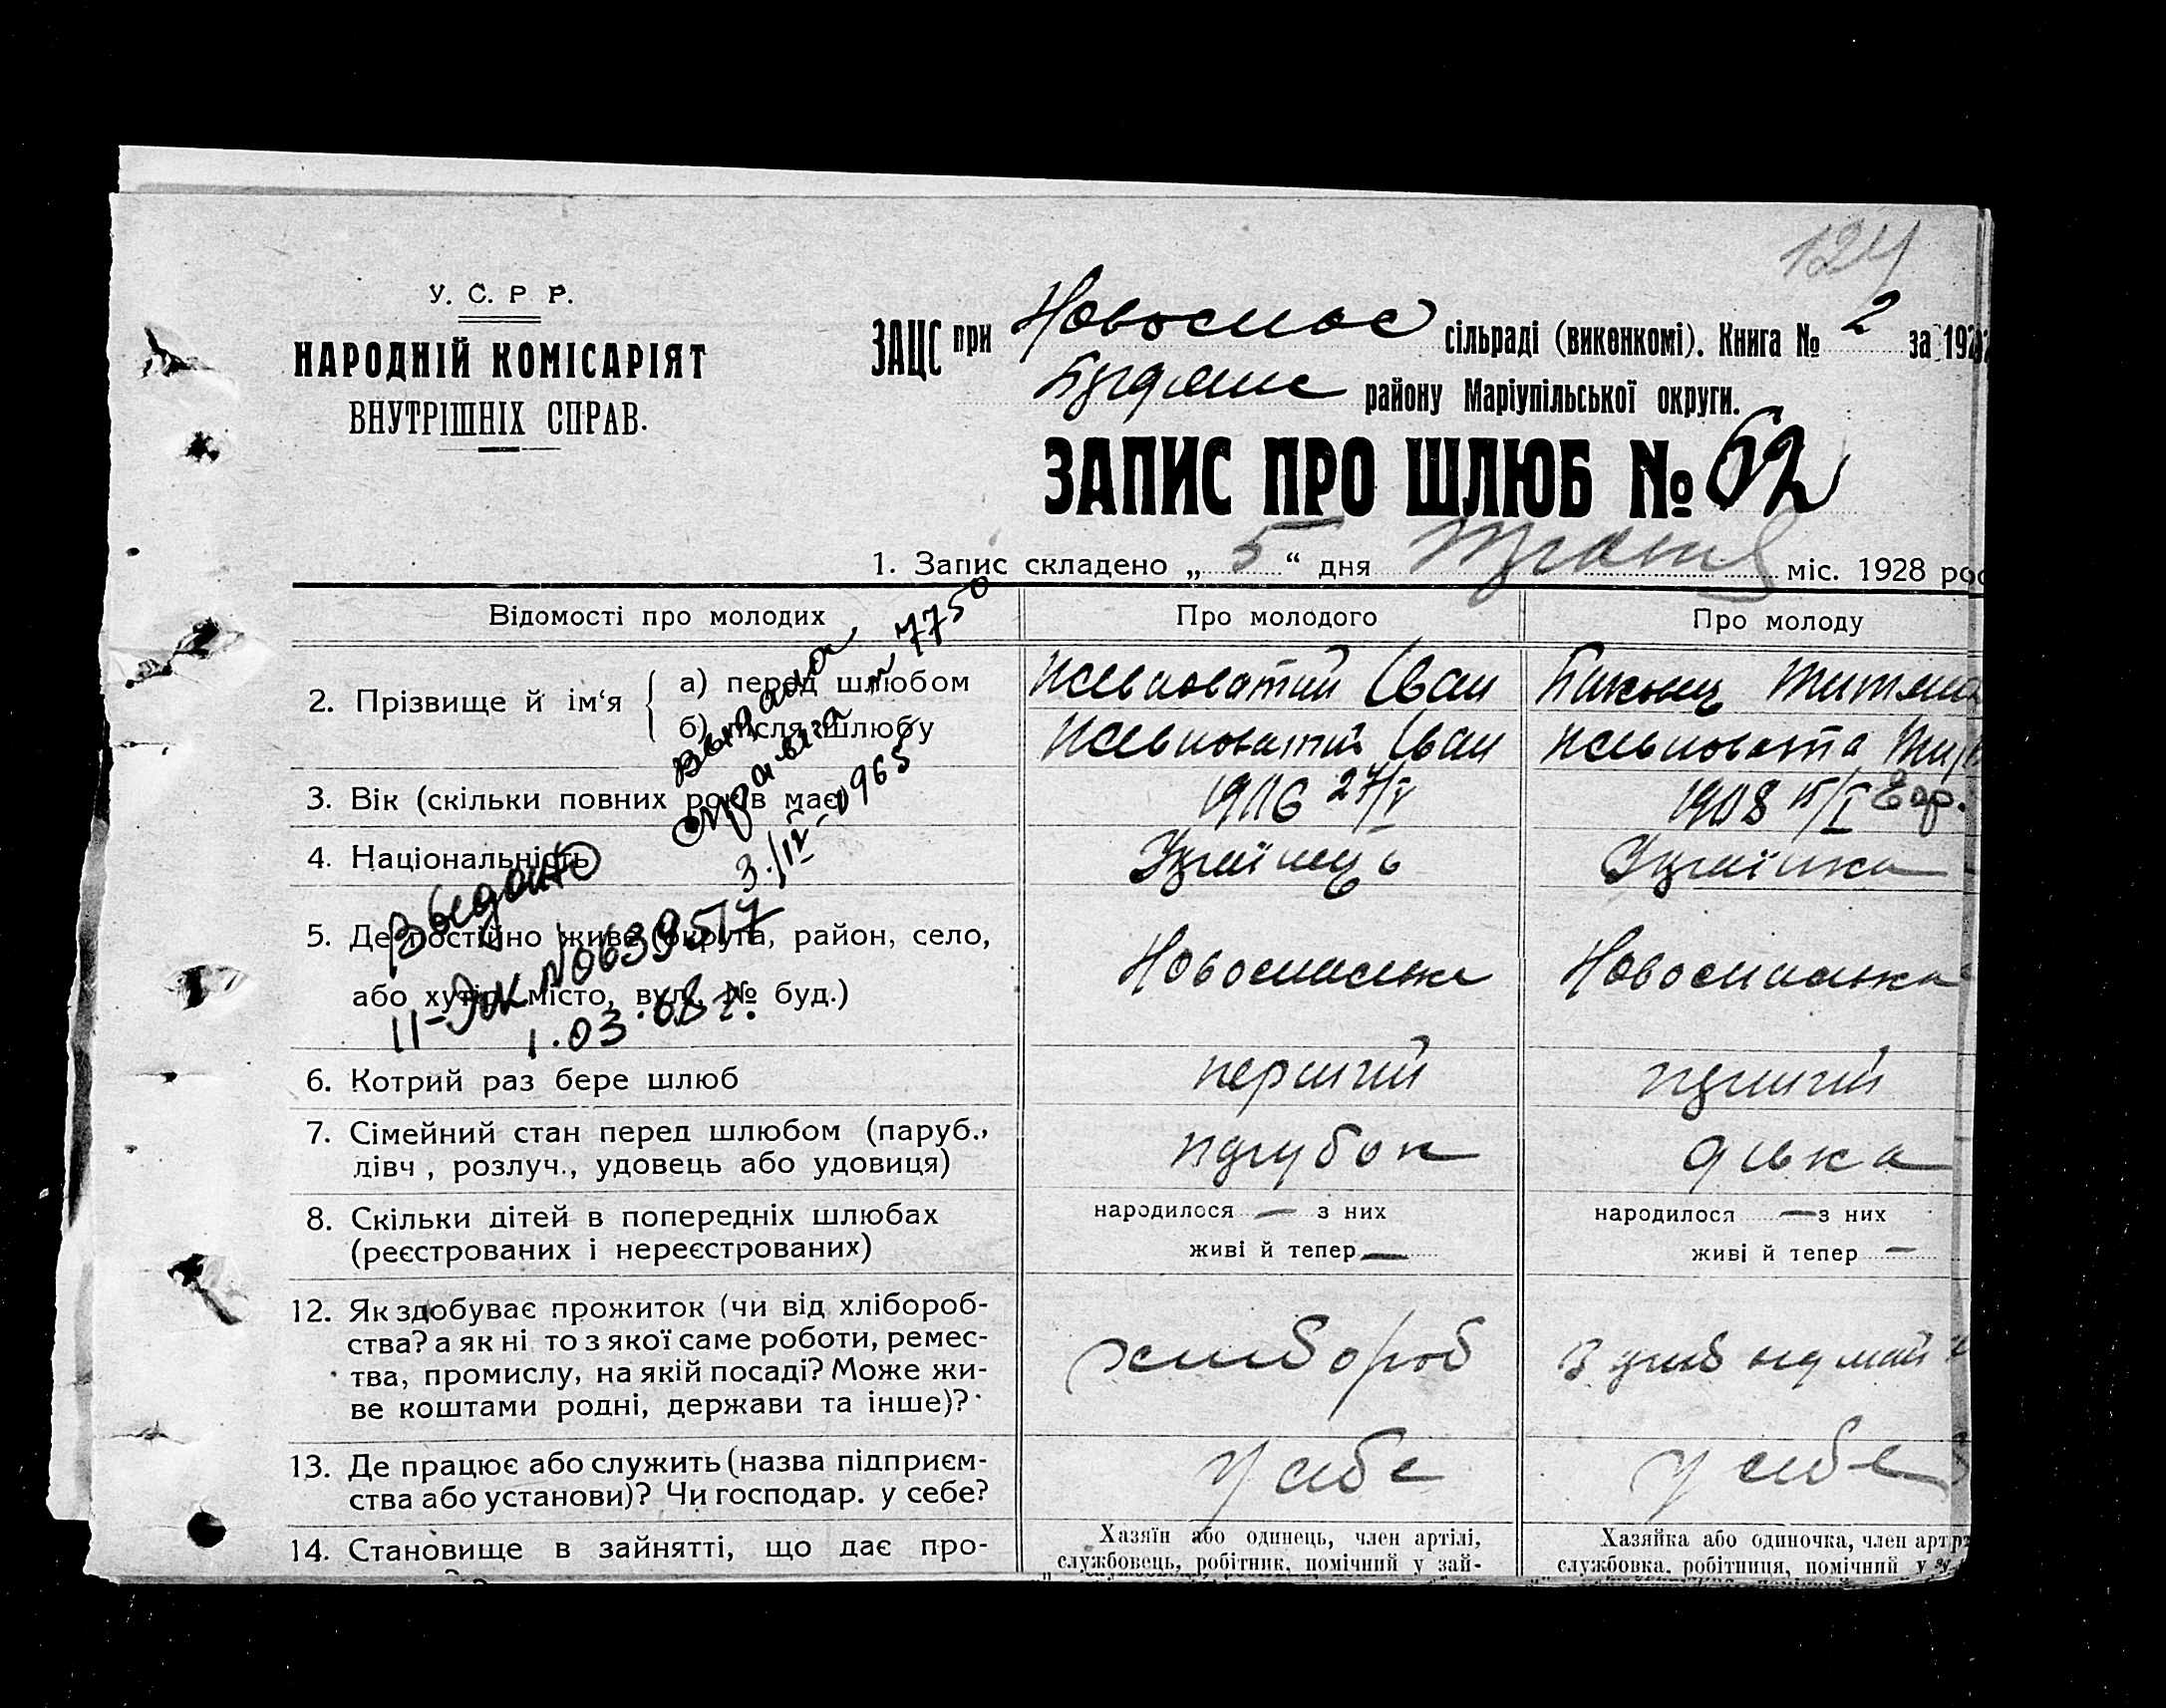 124
У. С. Р Р.
НАРОДНІЙ КОМІСАРІЯТ
ВНУТРІШНІХ СПРАВ.
ЗАЦС при Новоспас сільраді (виконкомі). Книга № 2 за 192
району Маріупільської округи.
ЗАПИС ПРО ШЛЮБ № 62
1. Запис складено „ 5 “ дня Травня міс. 1928 рос
Відомості про молодих
Про молодого
Про молоду
2. Прізвище й ім‘я
а) перед шлюбом
Іван
б) після шлюбу
Іван
3. Вік (скільки повних років має)
1906 27/V
1908 15/I
4. Національність
Українець
Українка
5. Де постійно живе (округа, район, село,
або хутір, місто, вул., № буд.)
Новоспасівка
Новоспасівка
6. Котрий раз бере шлюб
перший
перший
7. Сімейний стан перед шлюбом (паруб.,
дівч , розлуч., удовець або удовиця)
парубок
дівка
8. Скільки дітей в попередніх шлюбах
(реєстрованих і нереєстрованих)
народилося — з них
живі й тепер —
народилося — з них
живі й тепер —
12. Як здобуває прожиток (чи від хлібороб-
ства? а як ні то з якої саме роботи, ремес-
тва, промислу, на якій посаді? Може жи-
ве коштами родні, держави та інше)?
хлібороб
13. Де працює або служить (назва підприєм-
ства або установи)? Чи господар. у себе?
у себе
у себе
14. Становище в зайнятті, що дає про-
Хазяїн або одинець, член артілі,
службовець, робітник, помічний у зай-
Хазяйка або одиночка, член арт
службовка, робітниця, помічний у
Выдана
справка № 7750
3./IV-1965
Выдано
II-ЭК №0639517
1.03.68 г.